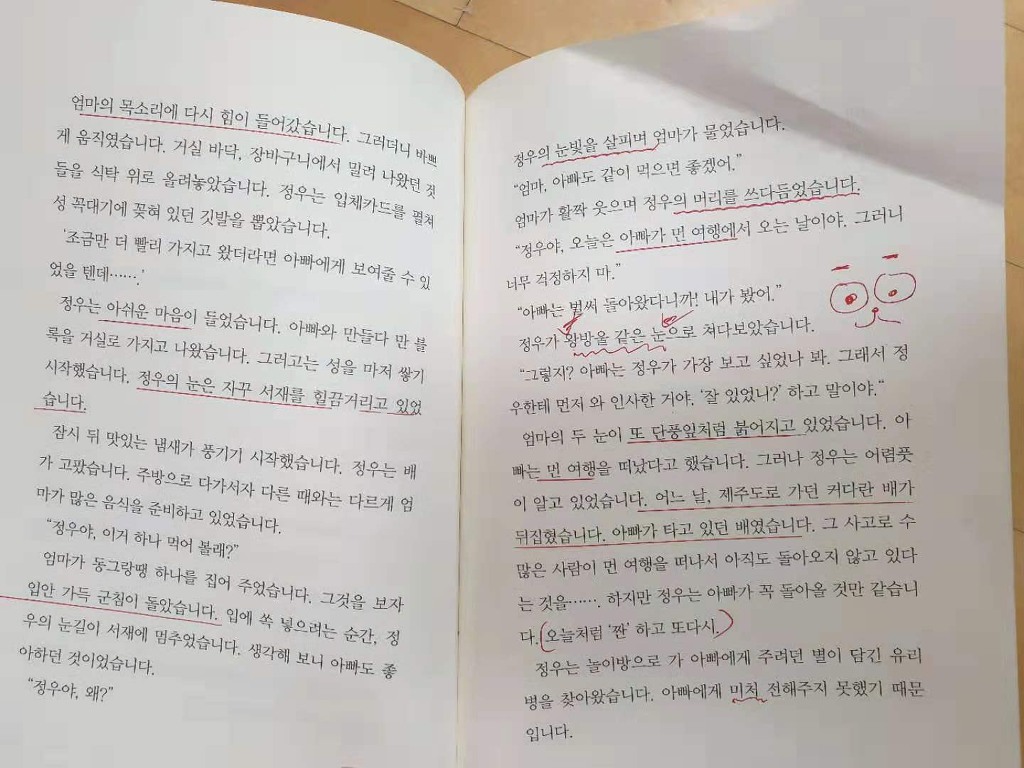 엄마의 목소리에 다시 힘이 들어갔습니다. 그러더니 바쁘
게 움직였습니다. 거실 바닥, 장바구니에서 밀려 나왔던 것
들을 식탁 위로 올려놓았습니다. 정우는 입체카드를 펼쳐
성 꼭대기에 꽂혀 있던 깃발을 뽑았습니다.
‘조금만 더 빨리 가지고 왔더라면 아빠에게 보여줄 수 있
었을 텐데…….’
정우는 아쉬운 마음이 들었습니다. 아빠와 만들다 만 블
록을 거실로 가지고 나왔습니다. 그러고는 성을 마저 쌓기
시작했습니다. 정우의 눈은 자꾸 서재를 힐끔거리고 있었
습니다.
잠시 뒤 맛있는 냄새가 풍기기 시작했습니다. 정우는 배
가 고팠습니다. 주방으로 다가서자 다른 때와는 다르게 엄
마가 많은 음식을 준비하고 있었습니다.
“정우야, 이거 하나 먹어 볼래?”
엄마가 동그랑땡 하나를 집어 주었습니다. 그것을 보자
입안 가득 군침이 돌았습니다. 입에 쏙 넣으려는 순간, 정
우의 눈길이 서재에 멈추었습니다. 생각해 보니 아빠도 좋
아하던 것이었습니다.
“정우야, 왜?”
정우의 눈빛을 살피며 엄마가 물었습니다.
“엄마, 아빠도 같이 먹으면 좋겠어.”
엄마가 활짝 웃으며 정우의 머리를 쓰다듬었습니다.
“정우야, 오늘은 아빠가 먼 여행에서 오는 날이야. 그러니
너무 걱정하지 마.”
“아빠는 벌써 돌아왔다니까! 내가 봤어.”
정우가 왕방울 같은 눈으로 쳐다보았습니다.
“그렇지? 아빠는 정우가 가장 보고 싶었나 봐. 그래서 정
우한테 먼저 와 인사한 거야. ‘잘 있었니?’ 하고 말이야.”
엄마의 두 눈이 또 단풍잎처럼 붉어지고 있었습니다. 아
빠는 먼 여행을 떠났다고 했습니다. 그러나 정우는 어렴풋
이 알고 있었습니다. 어느 날, 제주도로 가던 커다란 배가
뒤집혔습니다. 아빠가 타고 있던 배였습니다. 그 사고로 수
많은 사람이 먼 여행을 떠나서 아직도 돌아오지 않고 있다
는 것을……. 하지만 정우는 아빠가 꼭 돌아올 것만 같습니
다. 오늘처럼 ‘짠’ 하고 또다시.
정우는 놀이방으로 가 아빠에게 주려던 별이 담긴 유리
병을 찾아왔습니다. 아빠에게 미처 전해주지 못했기 때문
입니다.